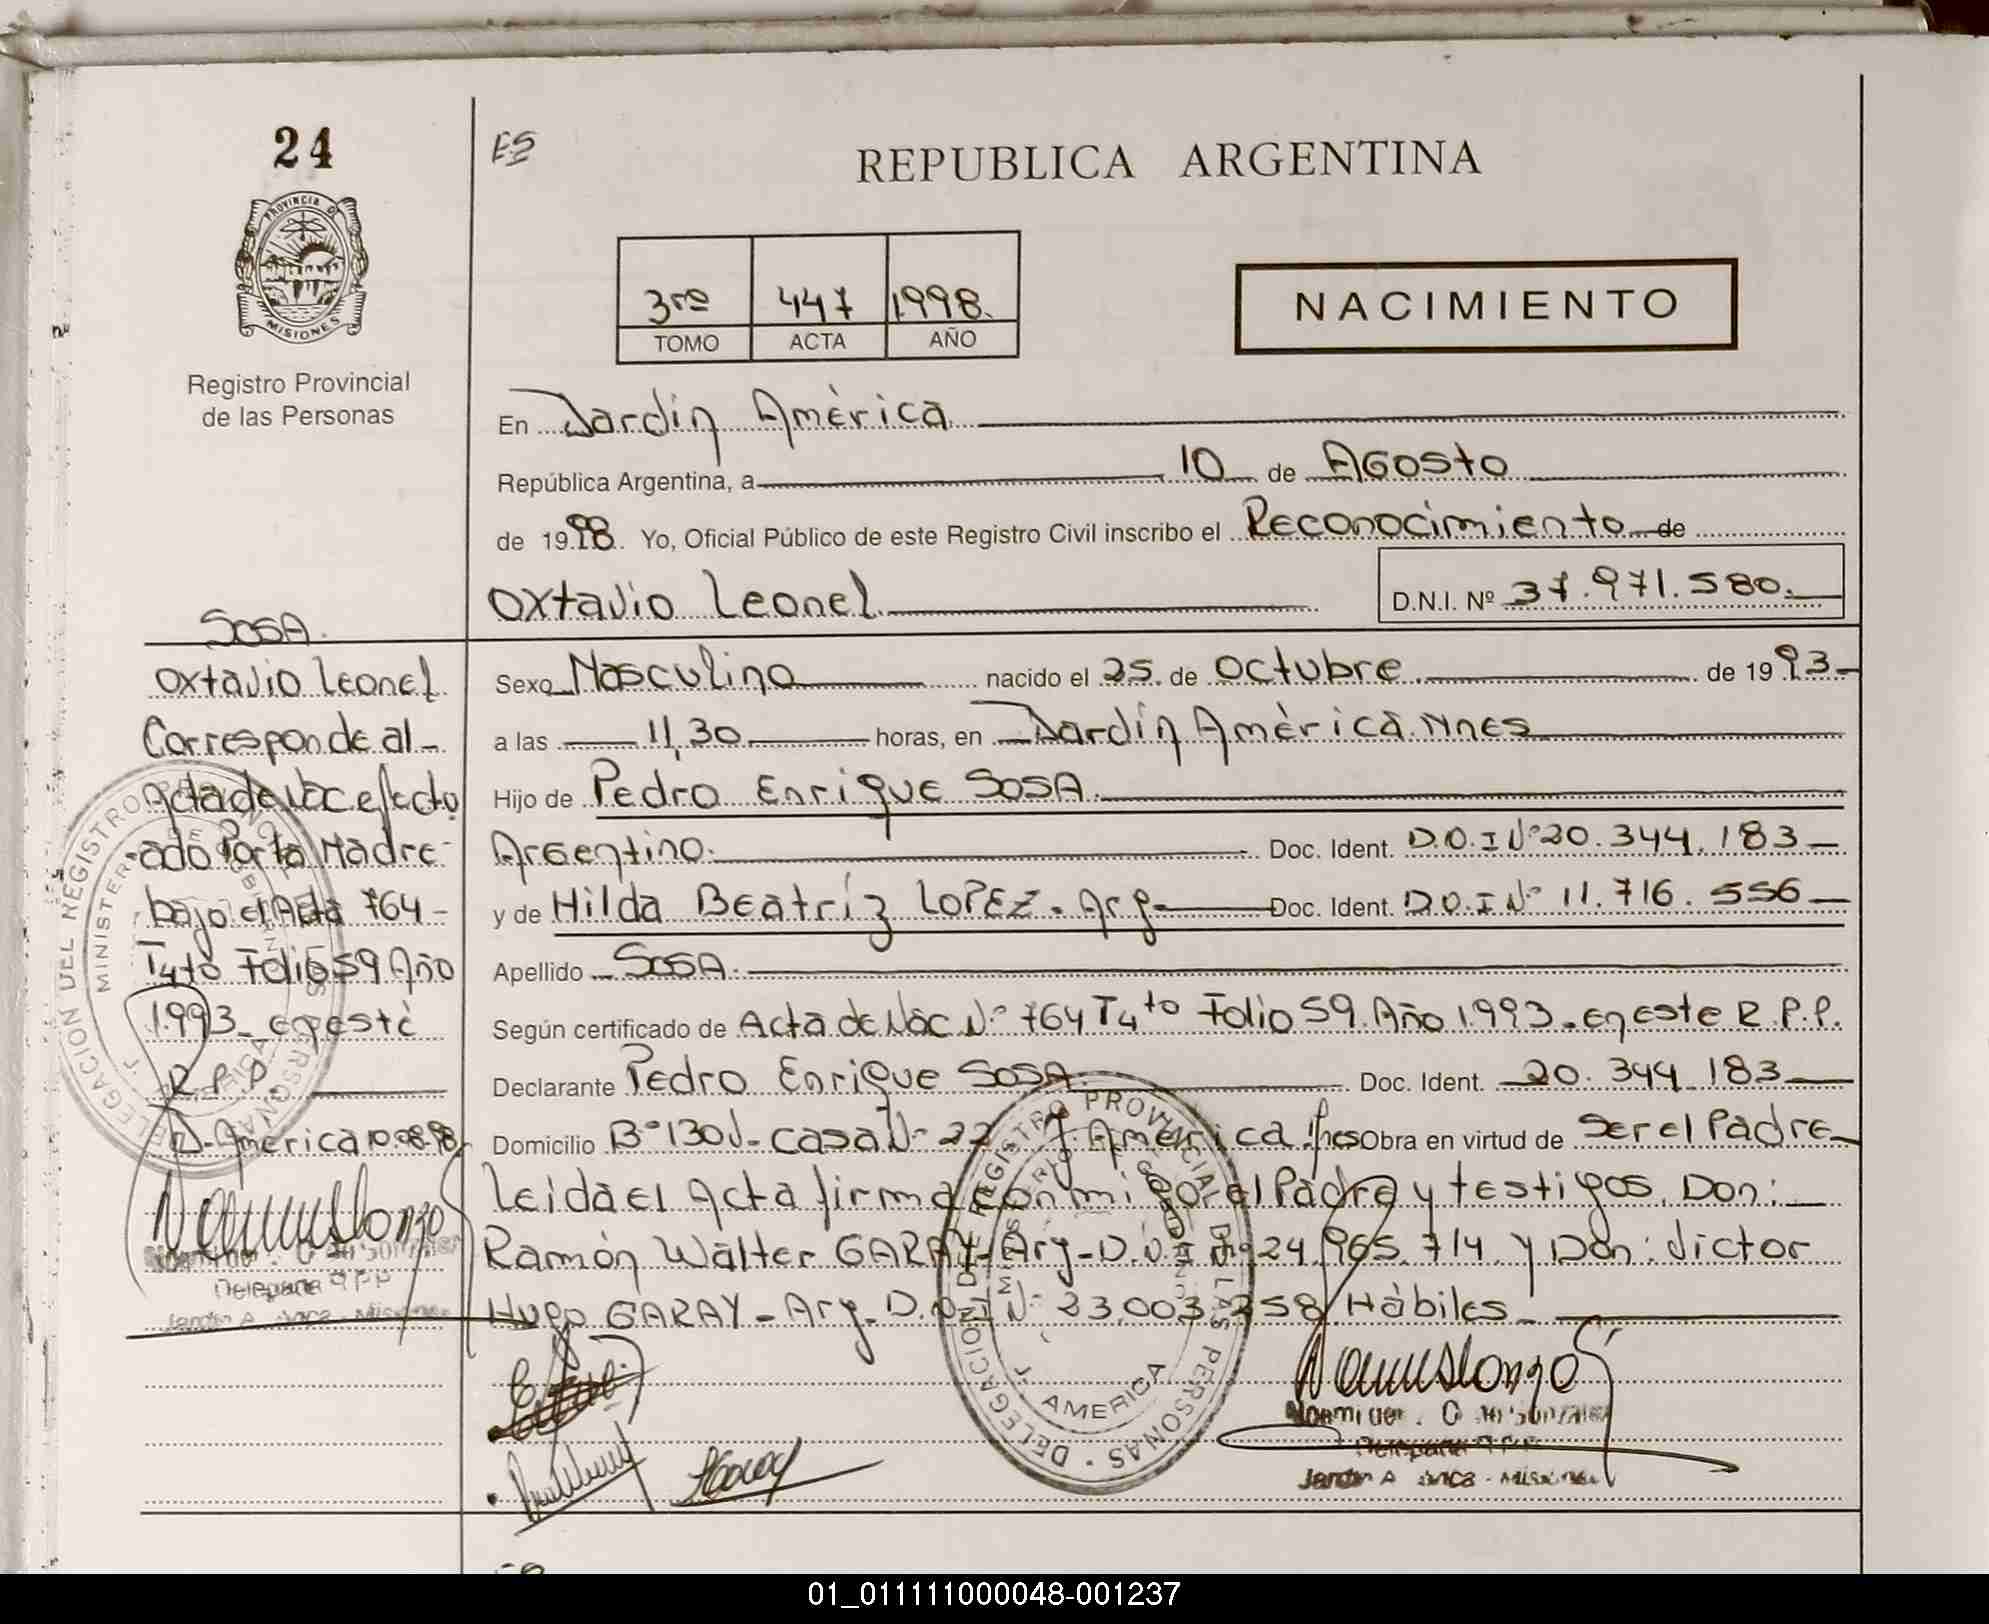 24
PROVINCIA DE
MISIONES
Registro Provincial
de las Personas
REPUBLICA ARGENTINA
3ro 447 1998.
TOMO ACTA AÑO
NACIMIENTO
En Jardín América
República Argentina, a 10 de Agosto
de 1998. Yo, Oficial Público de este Registro Civil inscribo el Reconocimiento de
Oxtavio Leonel D.N.I. Nº 37.971.580.
Sexo Masculino nacido el 25 de Octubre de 1993
a las 11,30 horas, en Jardín América Mnes
Hijo de Pedro Enrique SOSA.
Argentino. Doc. Ident. D.O.I Nº 20.344.183
y de Hilda Beatríz LOPEZ. Arg. Doc. Ident. D.O.I Nº 11.716.556
Apellido SOSA.
Según certificado de Acta de Nac Nº 764 T4to Folio 59 Año 1993. en este R.P.P.
Declarante Pedro Enrique SOSA. Doc. Ident. 20.344.183
Domicilio Bº 130 V. Casa Nº 22 J. América Mnes Obra en virtud de Ser el Padre
Leida el Acta firma conmigo el Padre y testigos. Don:
Ramón Walter GARAY Arg. D.O.I Nº 24.965.714 y Don: Victor
Hugo GARAY - Arg. D.O.I Nº 23.003.258 Hábiles
SOSA.
Oxtavio Leonel
Corresponde al
Acta de Nac efectu
ado Por la Madre
bajo el Acta 764
T4to Folio 59 Año
1993 en este
R.P.P.
J. America 10.08.98
DELEGACION DEL REGISTRO PROVINCIAL DE LAS PERSONAS
J. AMERICA
01_011111000048-001237